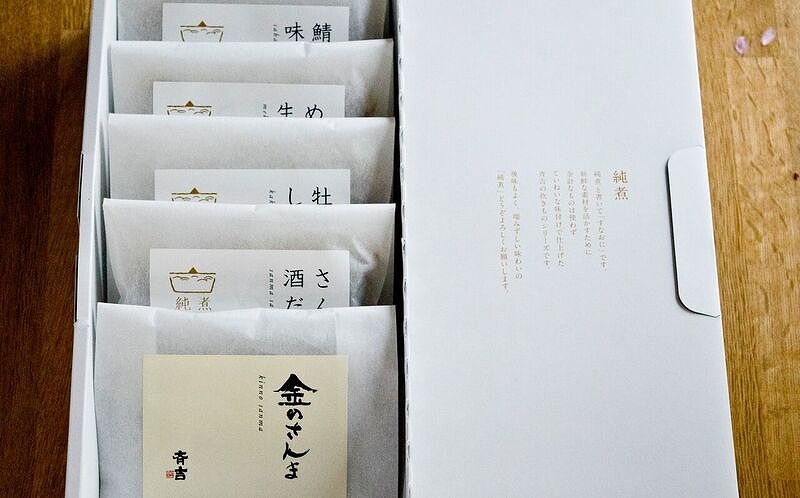 鯖
味
め
生
牡
し
さん
酒だ
sanma
純煮
金のさんま
kinno sanma
斉吉
純煮
純煮と書いて「すなおに」です
新鮮な素材を活かすために
余計なものは使わず
ていねいな味付けで仕上げた
斉吉の炊きものシリーズです
後味もよく、瑞みずしい味わいの
「純煮」どうぞよろしくお願いします。